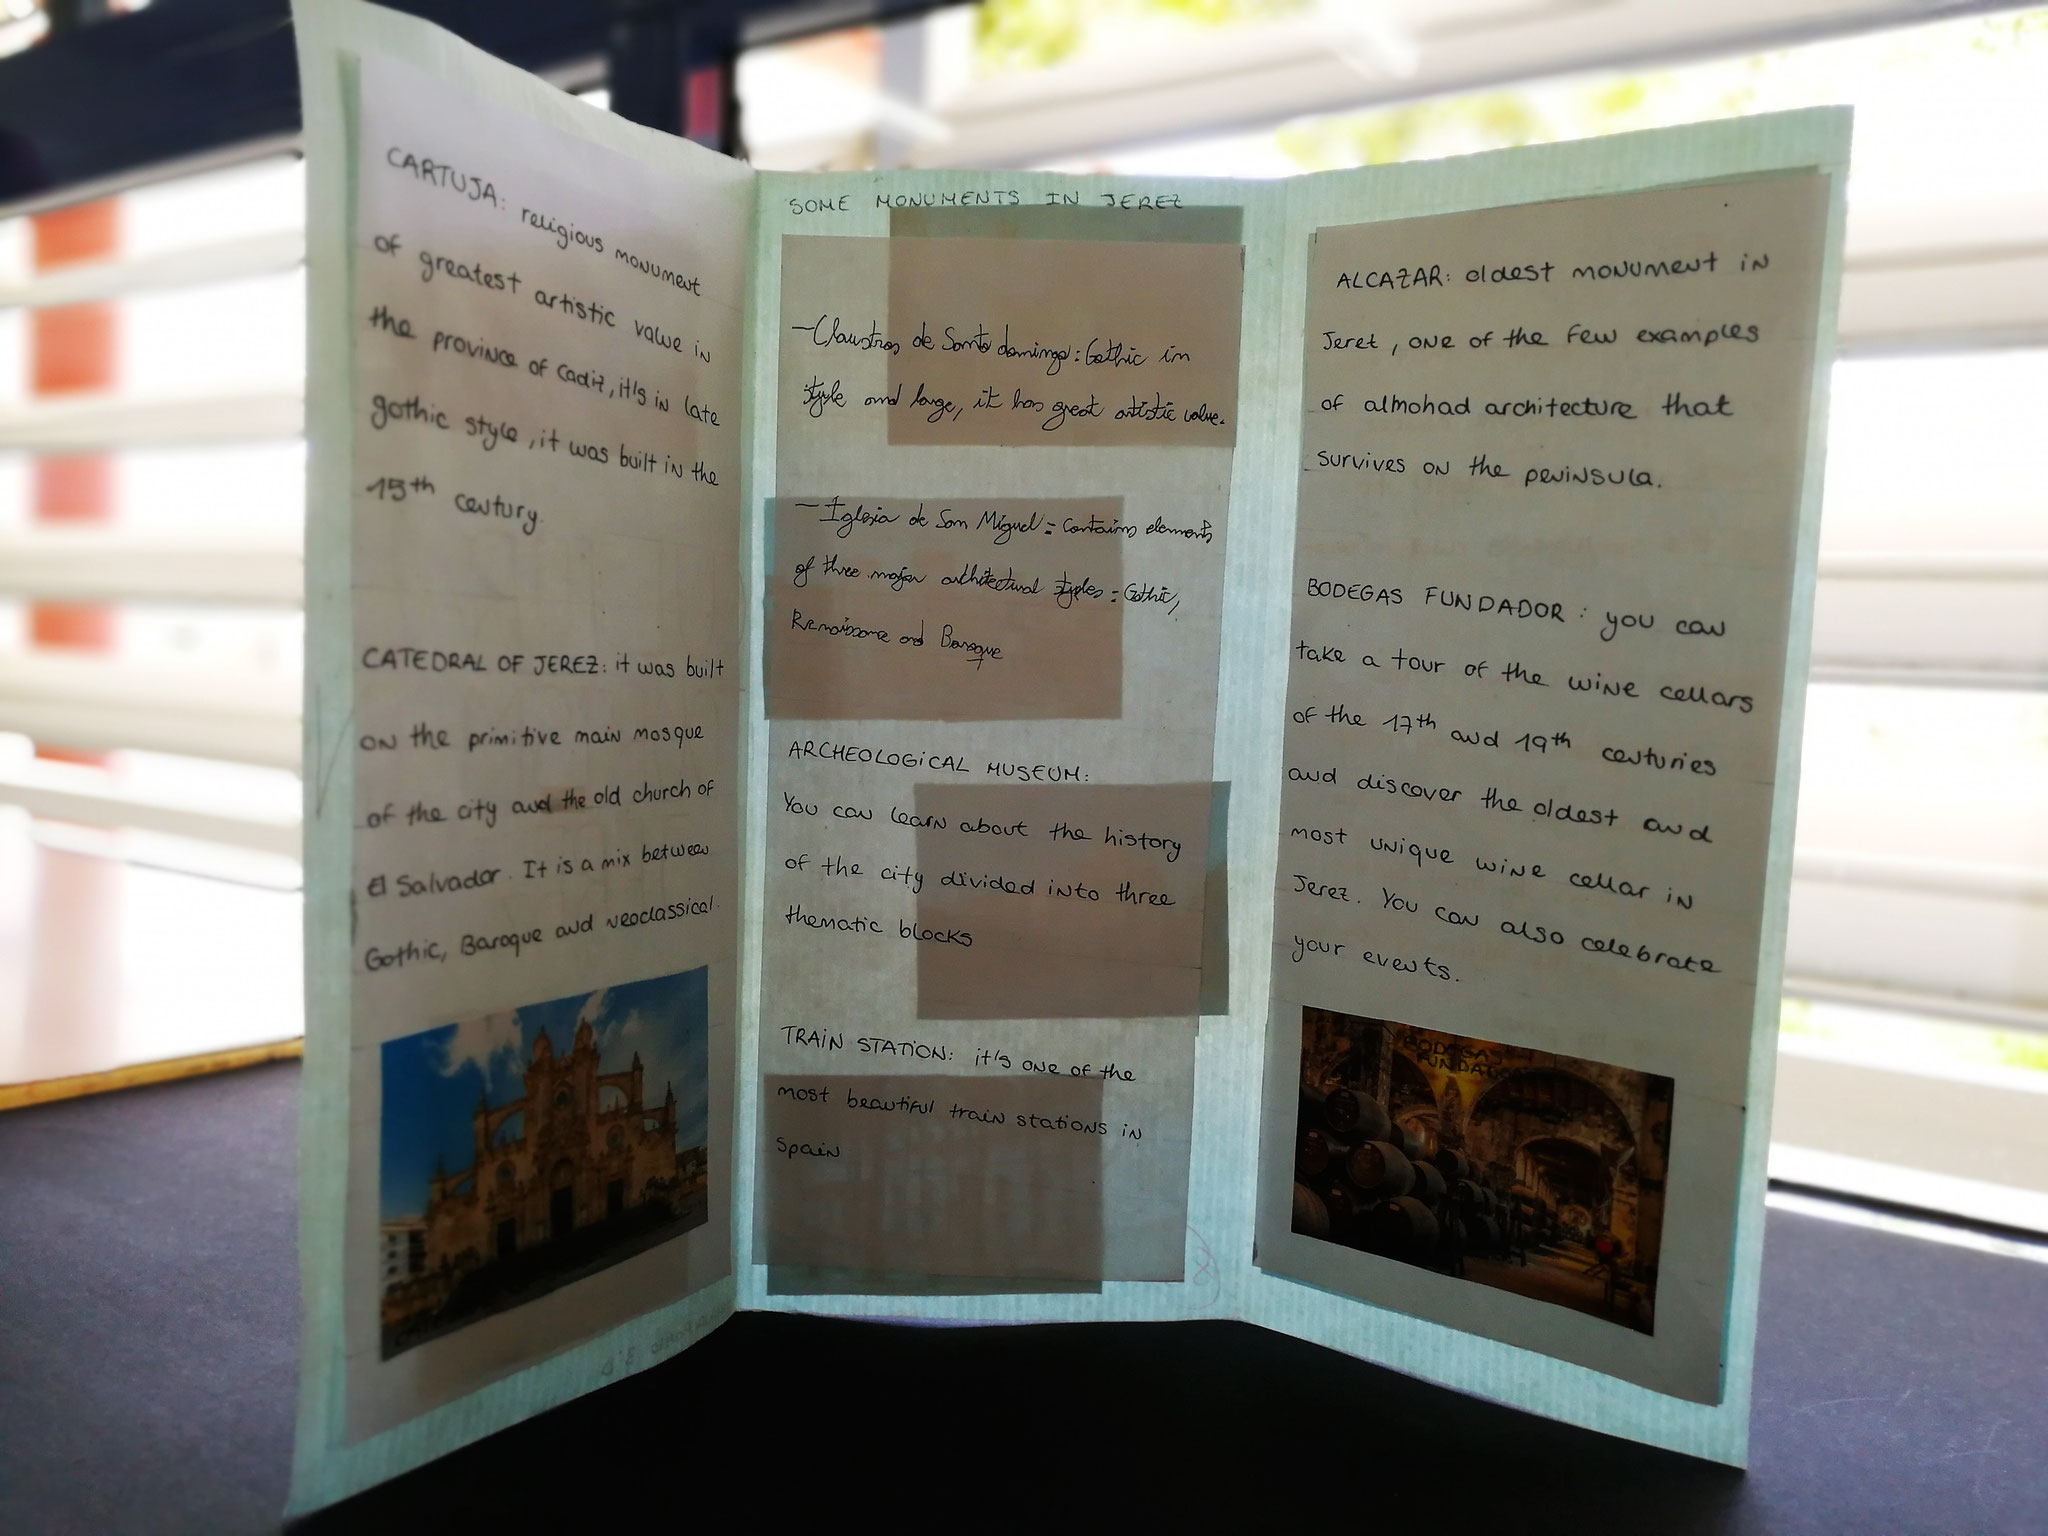 CARTUJA: religious monument
of greatest artistic value in
the province of Cadiz, it's in late
gothic style, it was built in the
15th century.
CATEDRAL OF JEREZ: it was built
on the primitive main mosque
of the city and the old church of
El Salvador. It is a mix between
Gothic, Baroque and neoclassical.
SOME MONUMENTS IN JEREZ
-Claustros de Santo domingo: Gothic in
style and large, it has great artistic value.
- Iglesia de San Miguel = Contains elements
of three major architectural styles = Gothic,
Renaissance and Baroque
ARCHEOLOGICAL MUSEUM:
You can learn about the history
of the city divided into three
thematic blocks
TRAIN STATION: it's one of the
most beautiful train stations in
Spain
ALCAZAR: oldest monument in
Jeret, one of the few examples
of almohad architecture that
survives on the peninsula.
BODEGAS FUNDADOR: you can
take a tour of the wine cellars
of the 17th and 19th centuries
and discover the oldest and
most unique wine cellar in
Jerez. You can also celebrate
your events.
BODEGAS